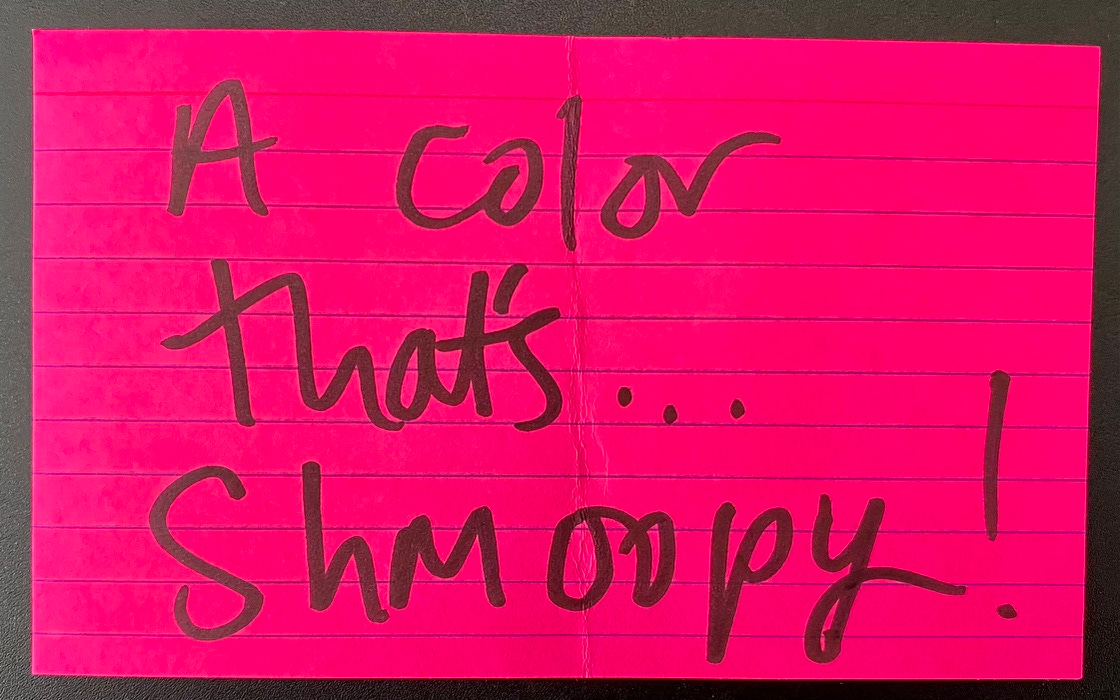 A color
that's...
Shmoopy!